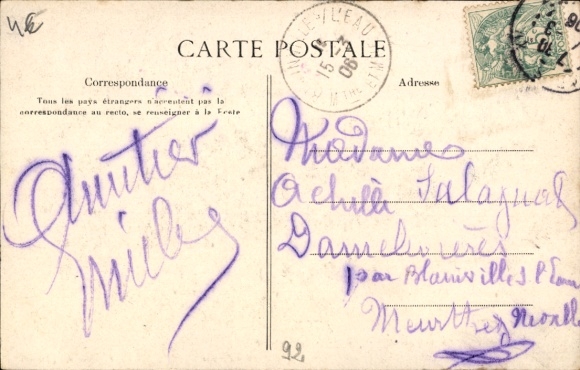 4€
CARTE POSTALE
Correspondance
Adresse
Tous les pays étrangers n'acceptent pas la
correspondance au recto, se renseigner à la Poste
Amitiés
Madame
Achille
Damelevières
par Blainville s. l'Eau
Meurthe Moselle
92